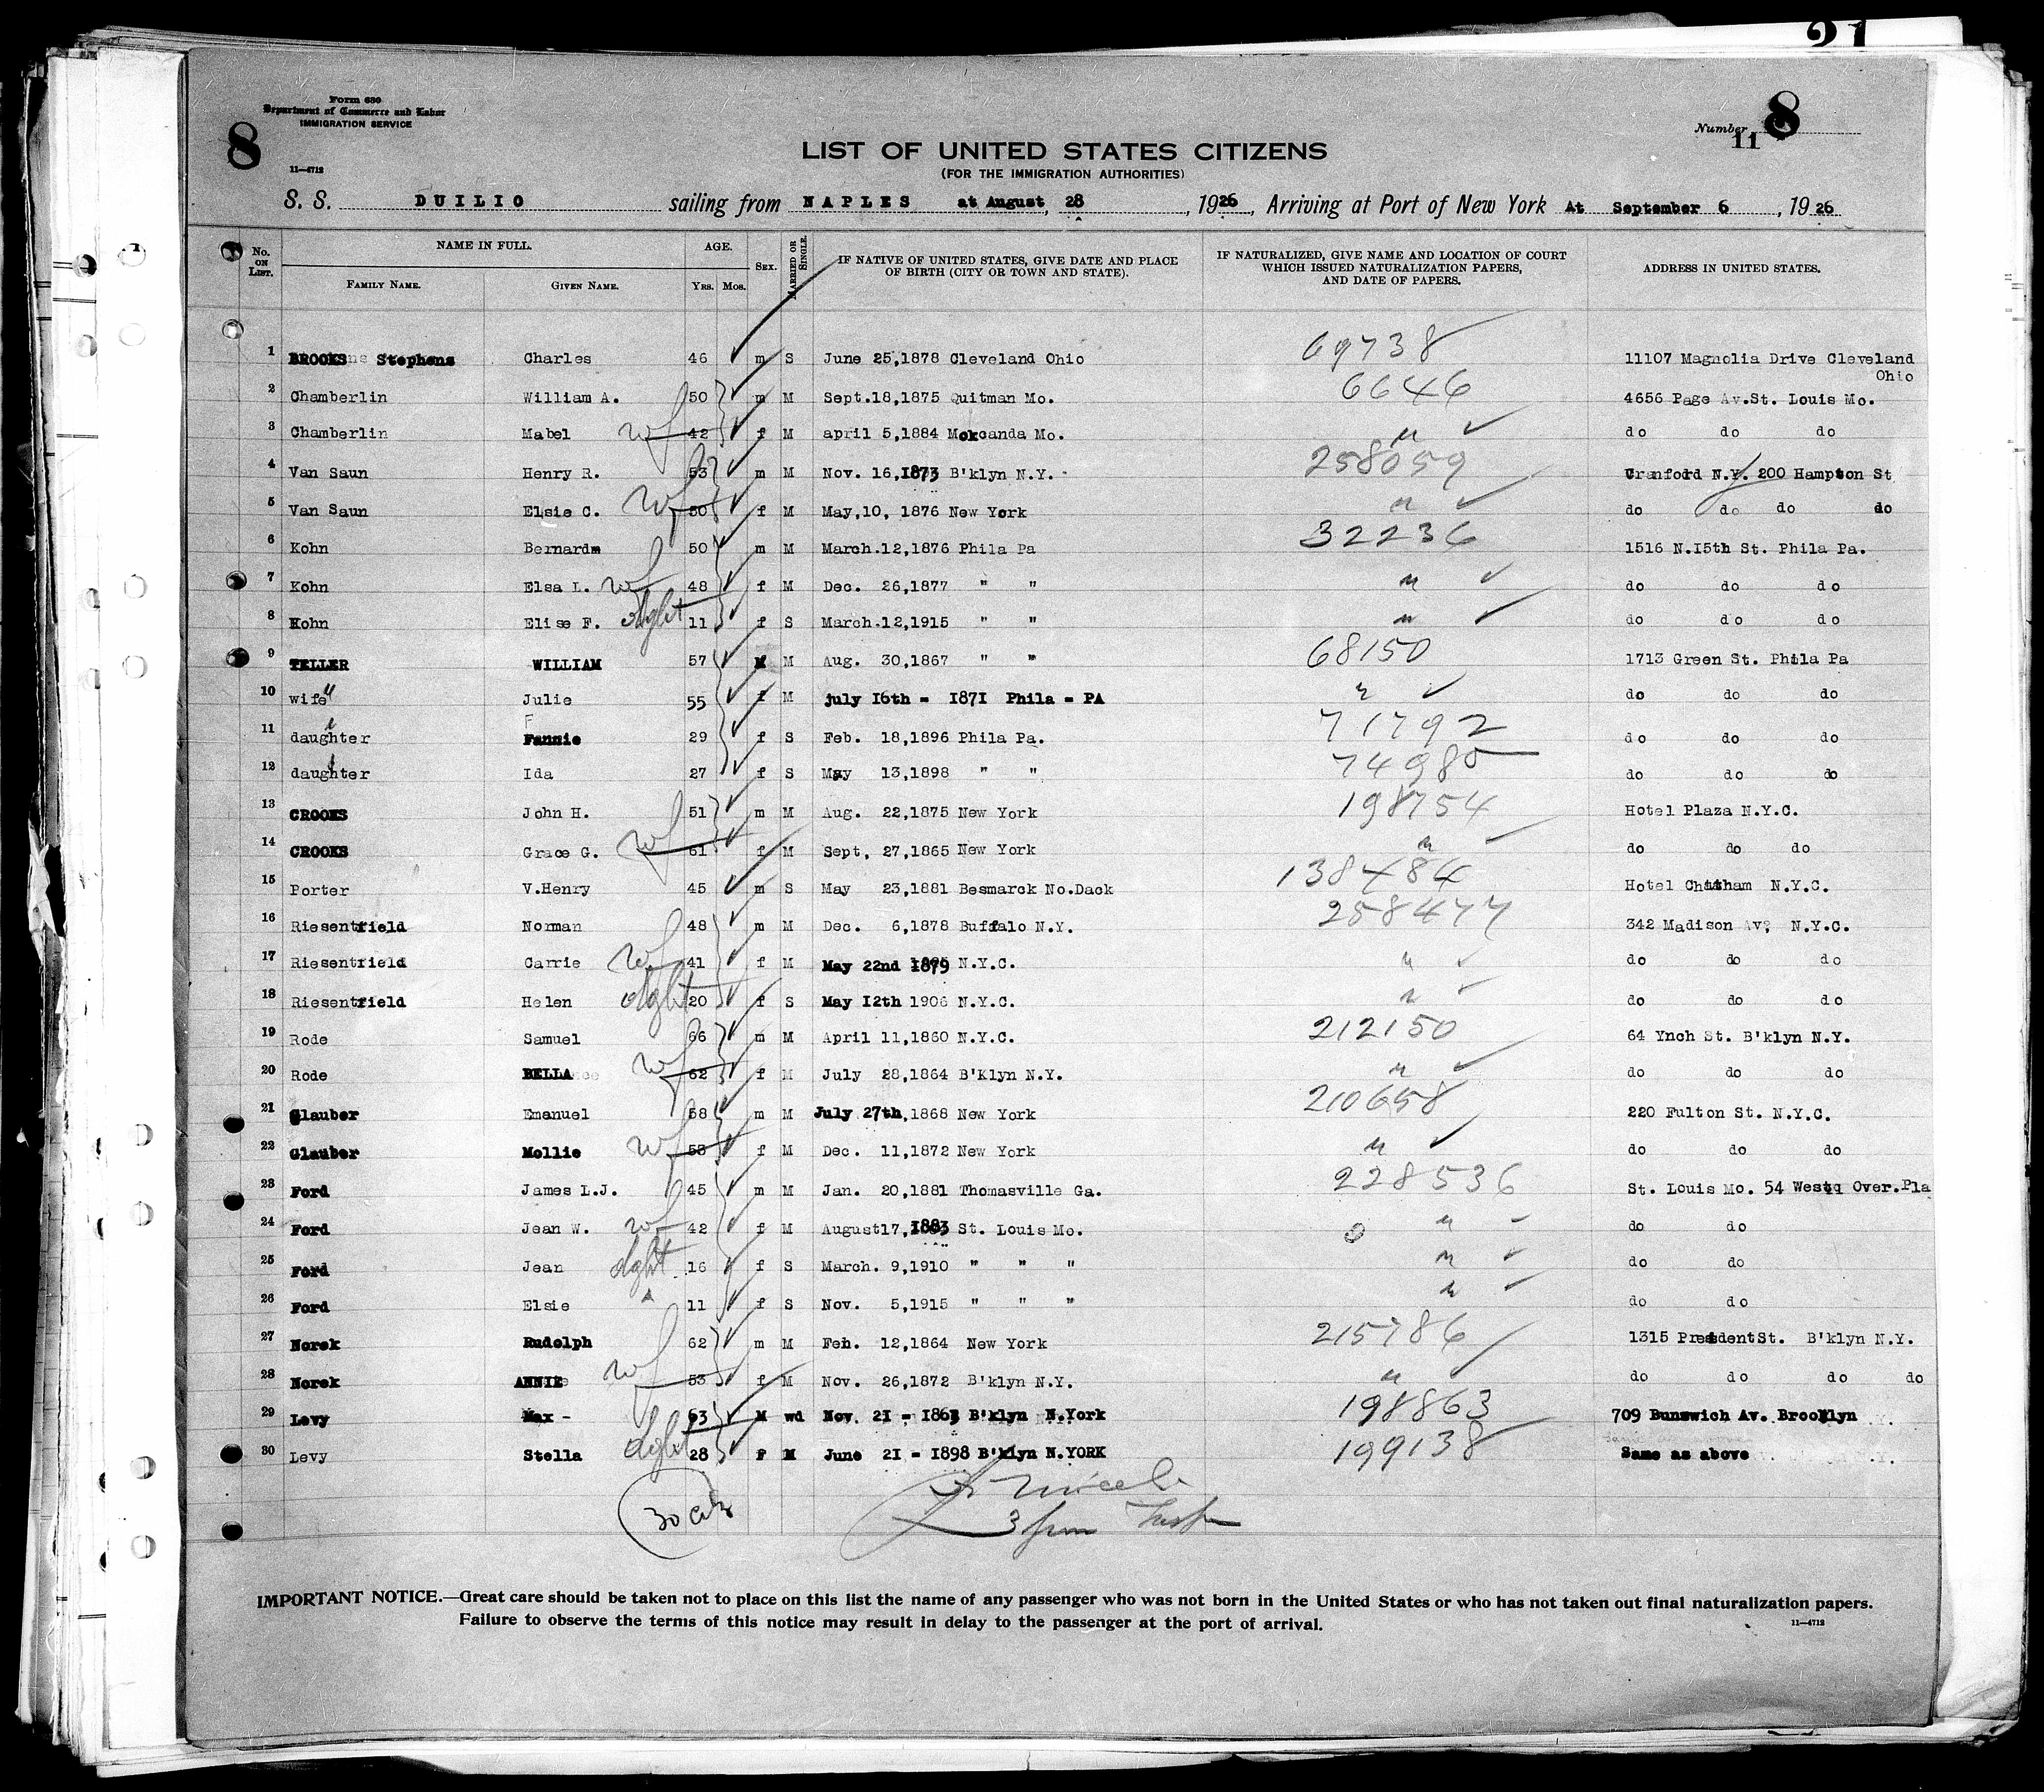 21
Form 630
Department of Commerce and Labor
IMMIGRATION SERVICE
8
11—4712
Number 11 8
LIST OF UNITED STATES CITIZENS
(FOR THE IMMIGRATION AUTHORITIES)
S. S. DUILIO sailing from NAPLES at August, 28, 1926, Arriving at Port of New York At September 6, 1926
No. ON LIST. NAME IN FULL. AGE. SEX. MARRIED OR SINGLE. IF NATIVE OF UNITED STATES, GIVE DATE AND PLACE OF BIRTH (CITY OR TOWN AND STATE). IF NATURALIZED, GIVE NAME AND LOCATION OF COURT WHICH ISSUED NATURALIZATION PAPERS, AND DATE OF PAPERS. ADDRESS IN UNITED STATES.
FAMILY NAME. GIVEN NAME. YRS. MOS.
1 BROOKS Stephens Charles 46 m S June 25,1878 Cleveland Ohio 69738 11107 Magnolia Drive Cleveland
Ohio
2 Chamberlin William A. 50 m M Sept.18,1875 Quitman Mo. 6646 4656 Page Av.St. Louis Mo.
3 Chamberlin Mabel wf 42 f M april 5,1884 Mokcanda Mo. " do do do
4 Van Saun Henry R. 53 m M Nov. 16,1873 B'klyn N.Y. 258059 Cranford N.Y. 200 Hampton St
5 Van Saun Elsie C. wf 50 f M May,10, 1876 New York " do do do do
6 Kohn Bernard 50 m M March.12,1876 Phila Pa 32236 1516 N.15th St. Phila Pa.
7 Kohn Elsa L. wf 48 f M Dec. 26,1877 " " " do do do
8 Kohn Elise F. dght 11 f S March.12,1915 " " " do do do
9 TELLER WILLIAM 57 M M Aug. 30,1867 " " 68150 1713 Green St. Phila Pa
10 wife Julie 55 f M july 16th = 1871 Phila = PA " do do do
11 daughter Fannie 29 f S Feb. 18,1896 Phila Pa. 71792 do do do
12 daughter Ida 27 f S May 13,1898 " " 74985 do do do
13 CROOKS John H. 51 m M Aug. 22,1875 New York 198754 Hotel Plaza N.Y.C.
14 CROOKS Grace G. wf 61 f M Sept, 27,1865 New York " do do do
15 Porter V.Henry 45 m S May 23,1881 Besmarck No.Dack 138484 Hotel Chatham N.Y.C.
16 Riesentfield Norman 48 m M Dec. 6,1878 Buffalo N.Y. 258477 342 Madison Av, N.Y.C.
17 Riesentfield Carrie wf 41 f M May 22nd 1879 N.Y.C. " do do do
18 Riesentfield Helen dght 20 f S May 12th 1906 N.Y.C. " do do do
19 Rode Samuel 66 m M April 11,1860 N.Y.C. 212150 64 Ynch St. B'klyn N.Y.
20 Rode BELLA wf 62 f M July 28,1864 B'Klyn N.Y. " do do do
21 Glauber Emanuel 58 m M July 27th,1868 New York 210658 220 Fulton St. N.Y.C.
22 Glauber Mollie wf 53 f M Dec. 11,1872 New York " do do do
23 Ford James L.J. 45 m M Jan. 20,1881 Thomasville Ga. 228536 St. Louis Mo. 54 Over.Pla
24 Ford Jean W. wf 42 f M August17,1883 St. Louis Mo. " do do
25 Ford Jean dght 16 f S March. 9,1910 " " " " do do
26 Ford Elsie " 11 f S Nov. 5,1915 " " " " do do
27 Norek Rudolph 62 m M Feh. 12,1864 New York 215786 1315 PresidentSt. B'klyn N.Y.
28 Norek ANNIE wf 53 f M Nov. 26,1872 B'klyn N.Y. " do do do do
29 Levy Max - 63 M wd Nov. 21 = 1863 B'klyn N.York 198863 709 Bunswich Av. Brooklyn
30 Levy Stella dght 28 F M June 21 = 1898 B'klyn N.YORK 199138 Same as above
30 citz
3 from
IMPORTANT NOTICE.—Great care should be taken not to place on this list the name of any passenger who was not born in the United States or who has not taken out final naturalization papers.
Failure to observe the terms of this notice may result in delay to the passenger at the port of arrival.
11—4712